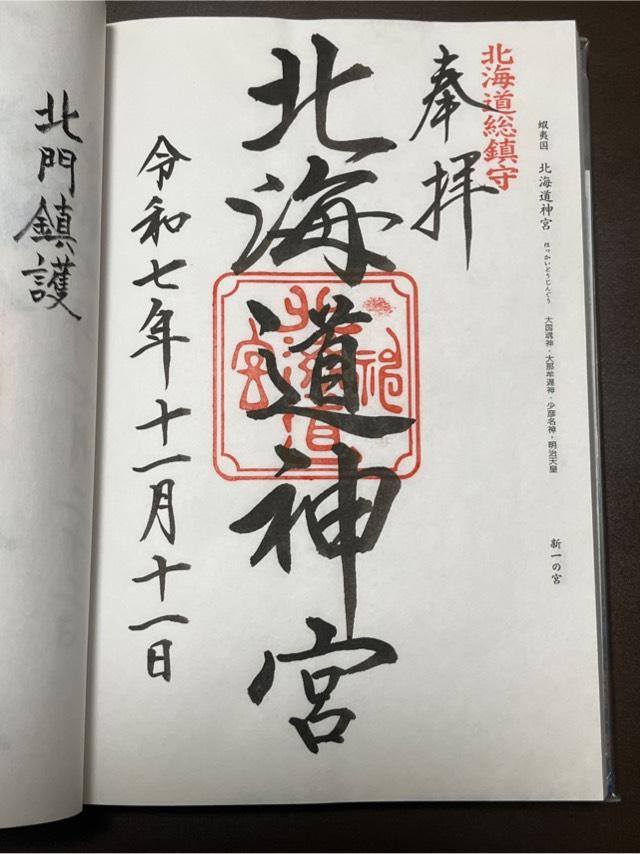 蝦夷国 北海道神宮 ほっかいどうじんぐう 大国魂神・大那牟遅神・少彦名神・明治天皇 新一の宮
北海道総鎮守
奉拝
北海道神宮
令和七年十一月十一日
北門鎮護